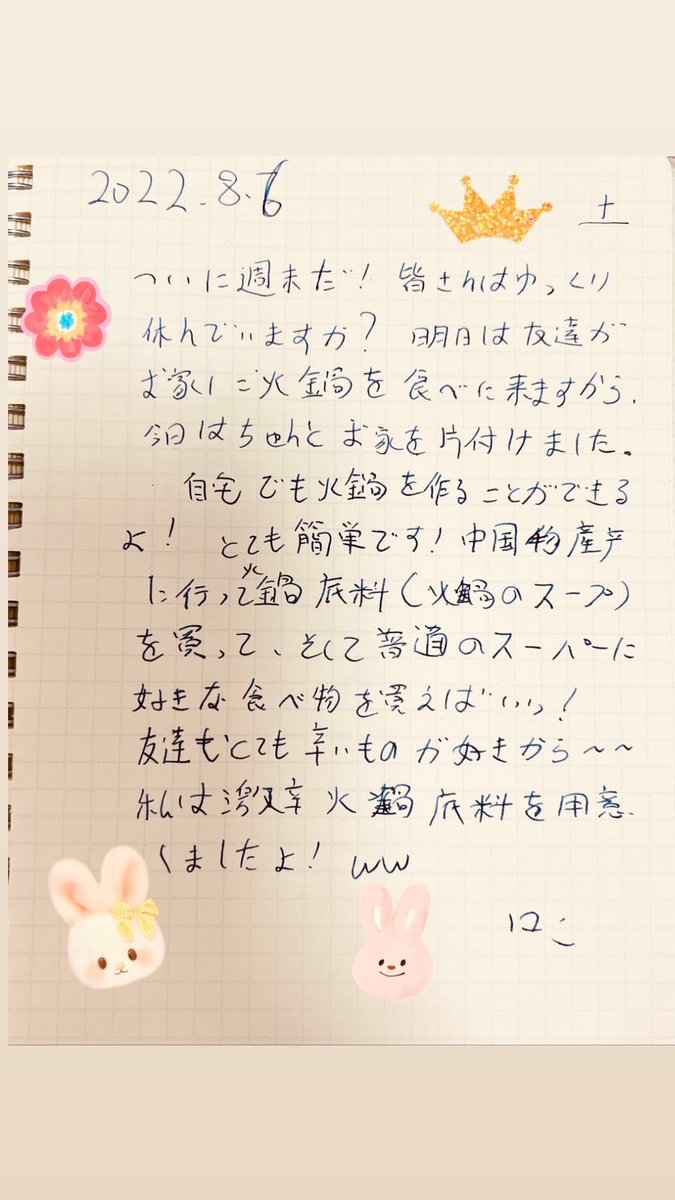 2022.8.6
土
ついに週末だ！皆さんはゆっくり
休んでいますか？明日は友達が
お家に火鍋を食べに来ますから、
今日はちゃんとお家を片付けました。
自宅でも火鍋を作ることができる
よ！とても簡単です！中国物産戸
に行って火鍋底料（火鍋のスープ）
を買って、そして普通のスーパーに
好きな食べ物を買えばいいっ！
友達もとても辛いものが好きから〜〜
私は激辛火鍋底料を用意
しましたよ！ww